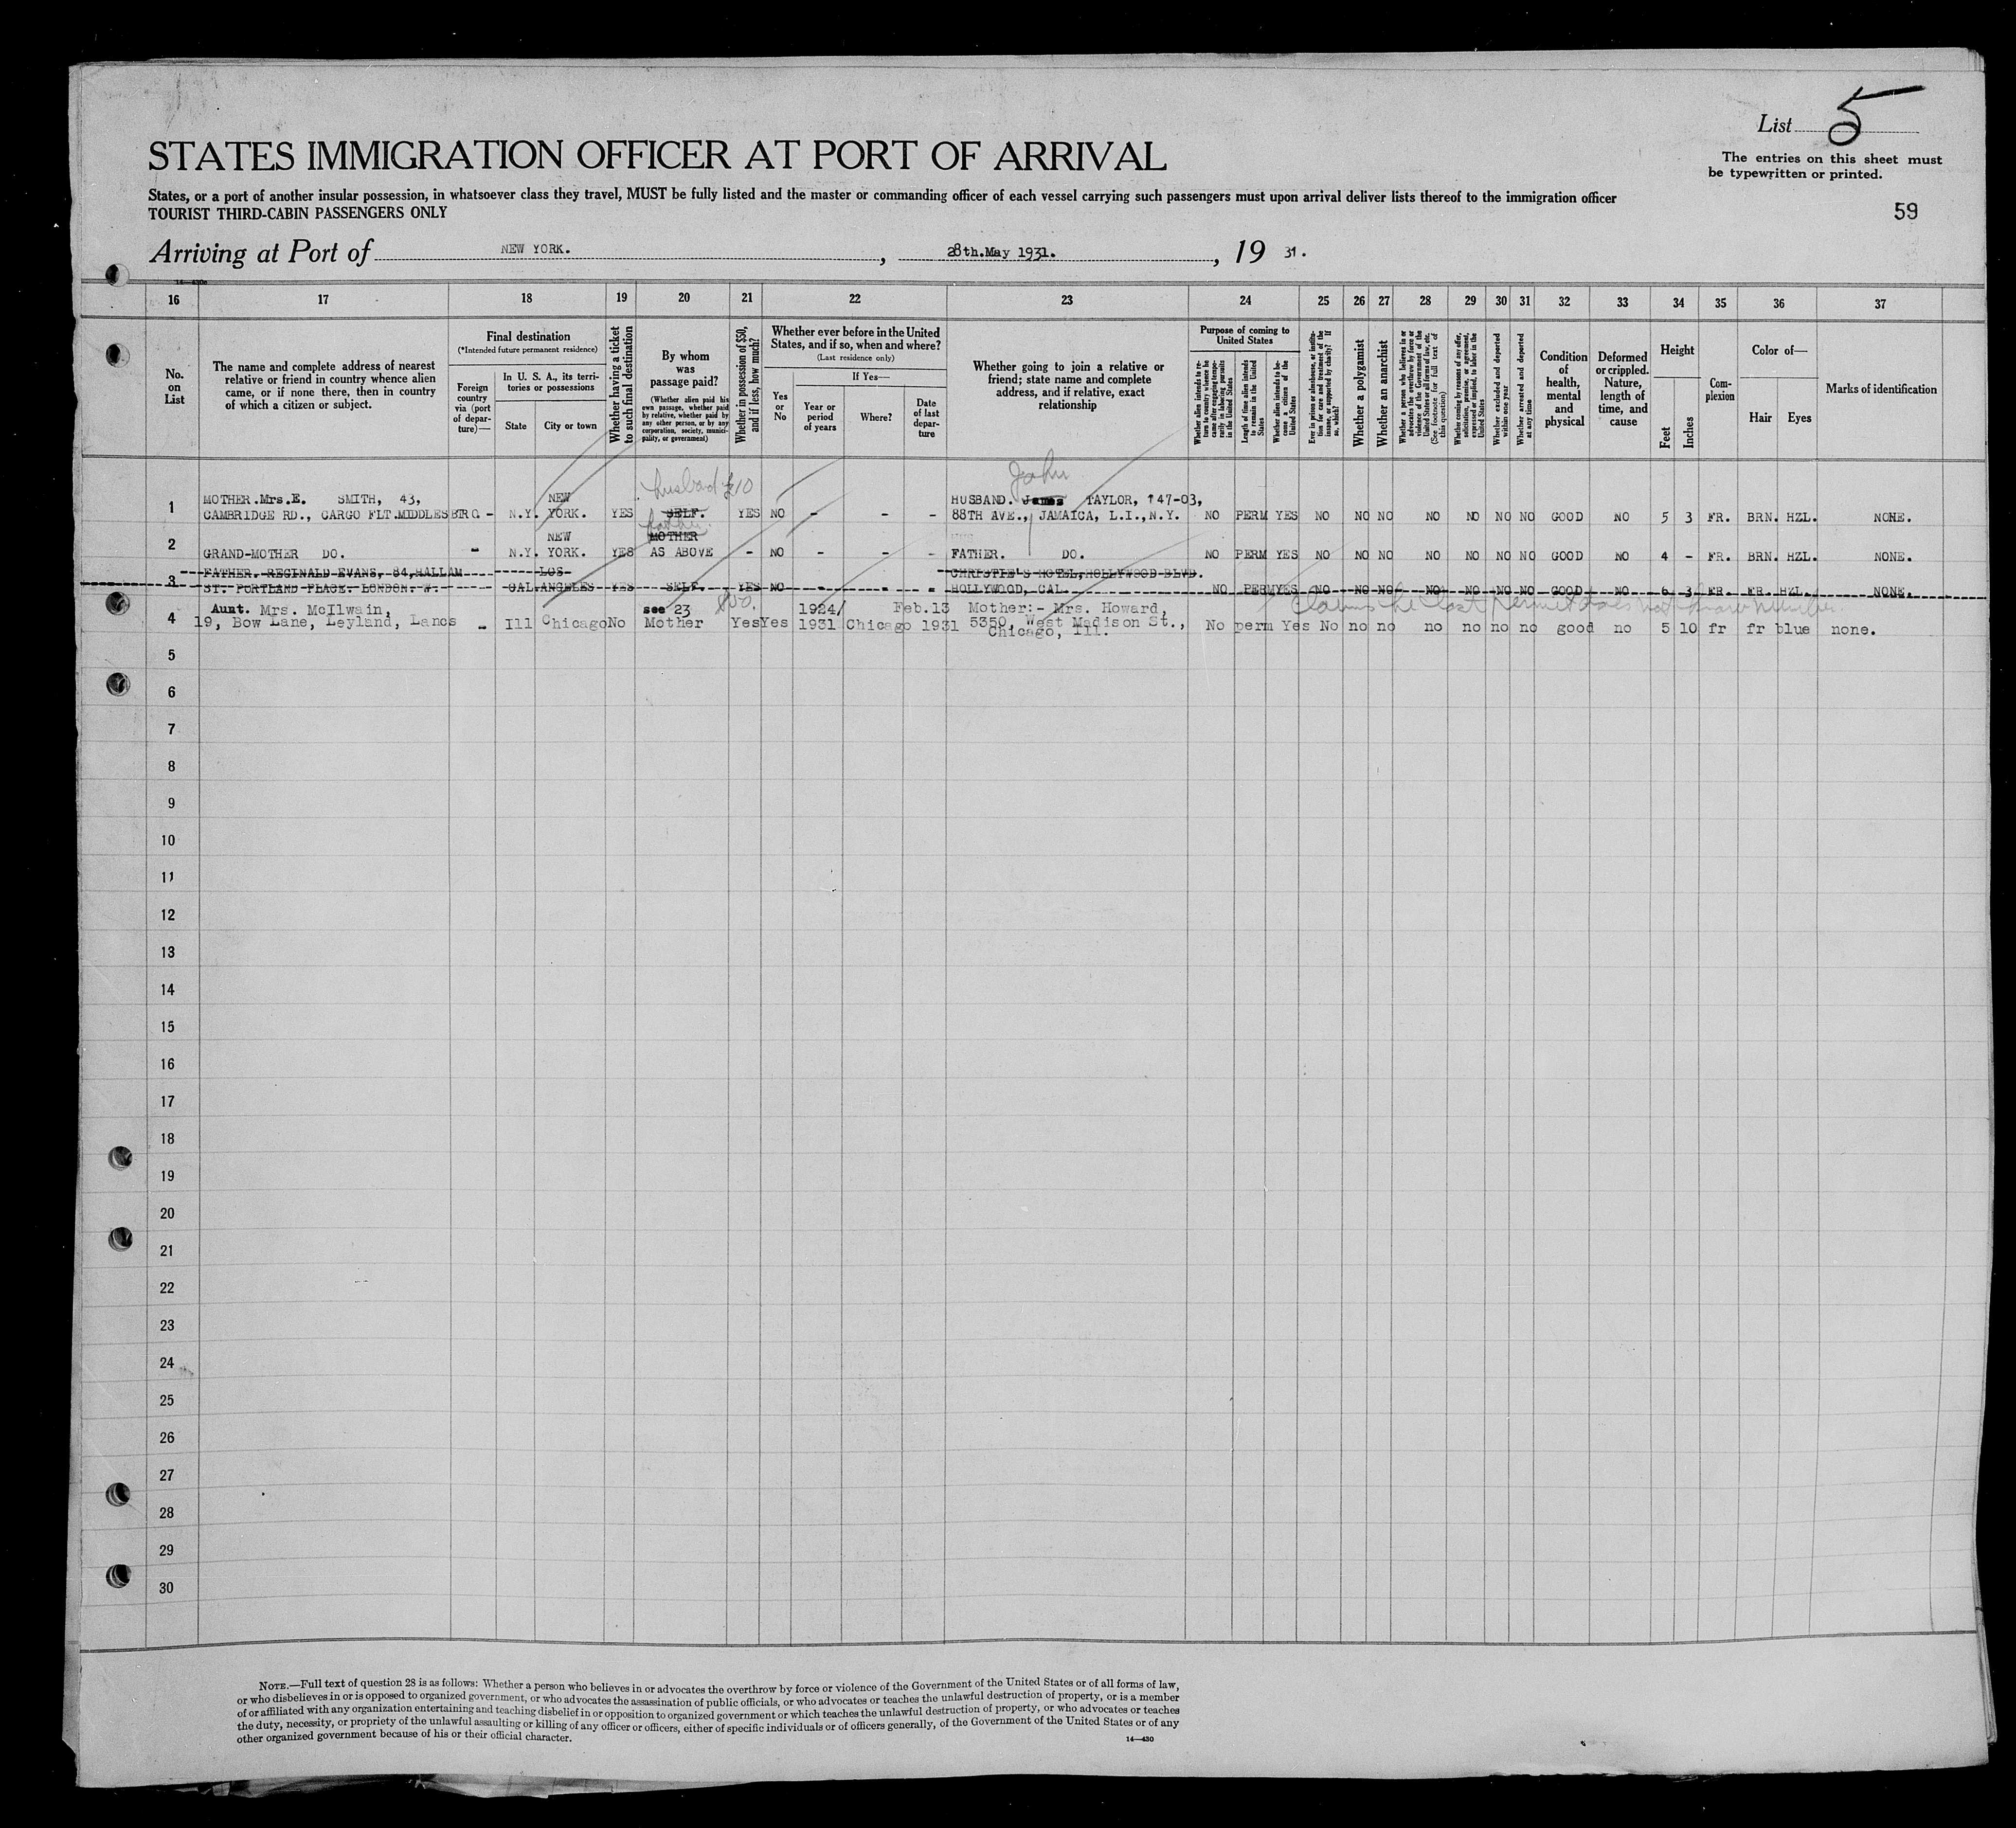 List 5
STATES IMMIGRATION OFFICER AT PORT OF ARRIVAL
The entries on this sheet must
be typewritten or printed.
States, or a port of another insular possession, in whatsoever class they travel, MUST be fully listed and the master or commanding officer of each vessel carrying such passengers must upon arrival deliver lists thereof to the immigration officer
TOURIST THIRD-CABIN PASSENGERS ONLY
59
Arriving at Port of NEW YORK. , 28th.May 1931. , 19 31.
14—430c
16 17 18 19 20 21 22 23 24 25 26 27 28 29 30 31 32 33 34 35 36 37
No.
on
List
The name and complete address of nearest
relative or friend in country whence alien
came, or if none there, then in country
of which a citizen or subject.
Final destination
(*Intended future permanent residence)
Foreign
country
via (port
of depar-
ture)—
In U. S. A., its terri-
tories or possessions
State
City or town
Whether having a ticket
to such final destination
By whom
was
passage paid?
(Whether alien paid his
own passage, whether paid
by relative, whether paid by
any other person, or by any
corporation, society, munici-
pality, or government)
Whether in possession of $50,
and if less, how much?
Whether ever before in the United
States, and if so, when and where?
(Last residence only)
Yes
or
No
If Yes—
Year or
period
of years
Where?
Date
of last
depar-
ture
Whether going to join a relative or
friend; state name and complete
address, and if relative, exact
relationship
Purpose of coming to
United States
Whether alien intends to re-
turn to country whence he
came after engaging tempo-
rarily in laboring pursuits
in the United States
Length of time alien intends
to remain in the United
States
Whether alien intends to be-
come a citizen of the
United States
Ever in prison or almshouse, or institu-
tion for care and treatment of the
insane, or supported by charity? If
so, which?
Whether a polygamist
Whether an anarchist
Whether a person who believes in or
advocates the overthrow by force or
violence of the Government of the
United States or all forms of law, etc.
(See footnote for full text of
this question)
Whether coming by reasons of any offer,
solicitation, promise, or agreement,
expressed or implied, to labor in the
United States
Whether excluded and deported
within one year
Whether arrested and deported
at any time
Condition
of
health,
mental
and
physical
Deformed
or crippled.
Nature,
length of
time, and
cause
Height
Feet
Inches
Com-
plexion
Color of—
Hair
Eyes
Marks of identification
husband £10 John
MOTHER.Mrs.E. SMITH, 43, NEW HUSBAND. James TAYLOR, 147-03,
1 CAMBRIDGE RD., CARGO FLT.MIDDLESBTRO - N.Y. YORK. YES SELF. YES NO - - - 88TH AVE., JAMAICA, L.I.,N.Y. NO PERM YES NO NO NO NO NO NO NO GOOD NO 5 3 FR. BRN. HZL. NONE.
father
NEW MOTHER
2 GRAND-MOTHER DO. - N.Y. YORK. YES AS ABOVE - NO - - - FATHER. DO. NO PERM YES NO NO NO NO NO NO NO GOOD NO 4 - FR. BRN. HZL. NONE.
FATHER. REGINALD EVANS, 84,HALLAM LOS CHRISTIE'S HOTEL,HOLLYWOOD BLVD.
3 ST. PORTLAND PLACE. LONDON. W. - CAL ANGELES YES SELF. YES NO - - - HOLLYWOOD, CAL. NO PERM YES NO NO NO NO NO NO NO GOOD NO 6 3 FR. FR. HZL. NONE.
claims he lost permit does not know number.
Aunt. Mrs. McIlwain, see 23 1924/ Feb.13 Mother:- Mrs. Howard,
4 19, Bow Lane, Leyland, Lancs - Ill Chicago No Mother Yes Yes 1931 Chicago 1931 5350, West Madison St., No perm Yes No no no no no no no good no 5 10 fr fr blue none.
Chicago, Ill.
5
6
7
8
9
10
11
12
13
14
15
16
17
18
19
20
21
22
23
24
25
26
27
28
29
30
NOTE.—Full text of question 28 is as follows: Whether a person who believes in or advocates the overthrow by force or violence of the Government of the United States or of all forms of law,
or who disbelieves in or is opposed to organized government, or who advocates the assassination of public officials, or who advocates or teaches the unlawful destruction of property, or is a member
of or affiliated with any organization entertaining and teaching disbelief in or opposition to organized government or which teaches the unlawful destruction of property, or who advocates or teaches
the duty, necessity, or propriety of the unlawful assaulting or killing of any officer or officers, either of specific individuals or of officers generally, of the Government of the United States or of any
other organized government because of his or their official character.
14—430